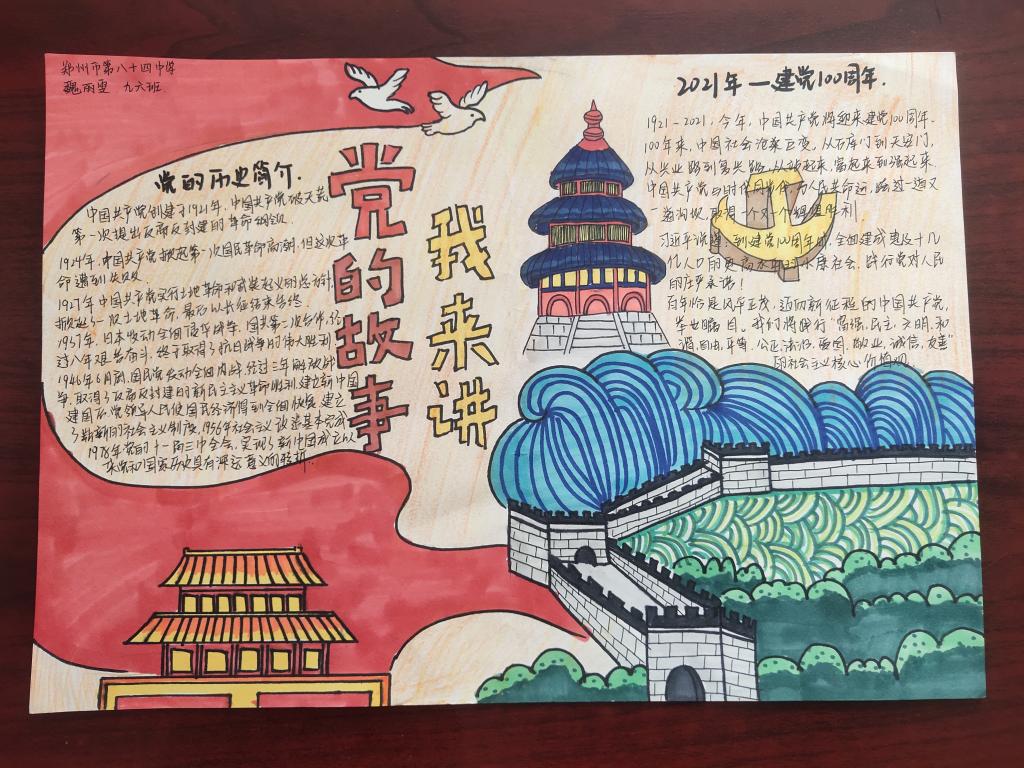 郑州市第八十四中学
魏雨雯 九六班
党的历史简介.
中国共产党创建于1921年,中国共产党破天荒
第一次提出反帝反封建的革命纲领
1924年,中国共产党掀起第一次国民革命高潮,但这次革
命遭到失败
1927年 中国共产党实行土地革命和武装起义的总方针,
掀起了一股土地革命,最后以长征结束告终
1937年,日本发动全面侵华战争,国共第二次合作,经
过八年艰苦奋斗,终于取得了抗日战争的伟大胜利
1946年6月底,国民党发动全面内战,经过三年解放战
争,取得了反帝反封建的新民主主义革命胜利,建立新中国
建国后党领导人民使国民经济得到全面恢复,建立
了崭新的社会主义制度,1956年社会主义改造基本完成
1978年党的十一届三中全会,实现了新中国成立以
来党和国家历史具有深远意义的转折.
党的故事
我来讲
2021年—建党100周年.
1921-2021,今年,中国共产党将迎来建党100周年.
100年来,中国社会沧桑巨变,从石库门到天安门,
从兴业路到复兴路,从站起来,富起来到强起来,
中国共产党与时代同步伐,为人民革命运,跨过一道又
一道沟坎,取得一个又一个辉煌胜利.
习近平说道,到建党100周年时,全面建成惠及十几
亿人口的更高水平的小康社会,践行党对人民
的庄严承诺!
百年恰是风华正茂,迈向新征程的中国共产党,
举世瞩目。我们将践行“富强,民主,文明,和
谐,自由,平等,公正,法治,爱国,敬业,诚信,友善”
的社会主义核心价值观.